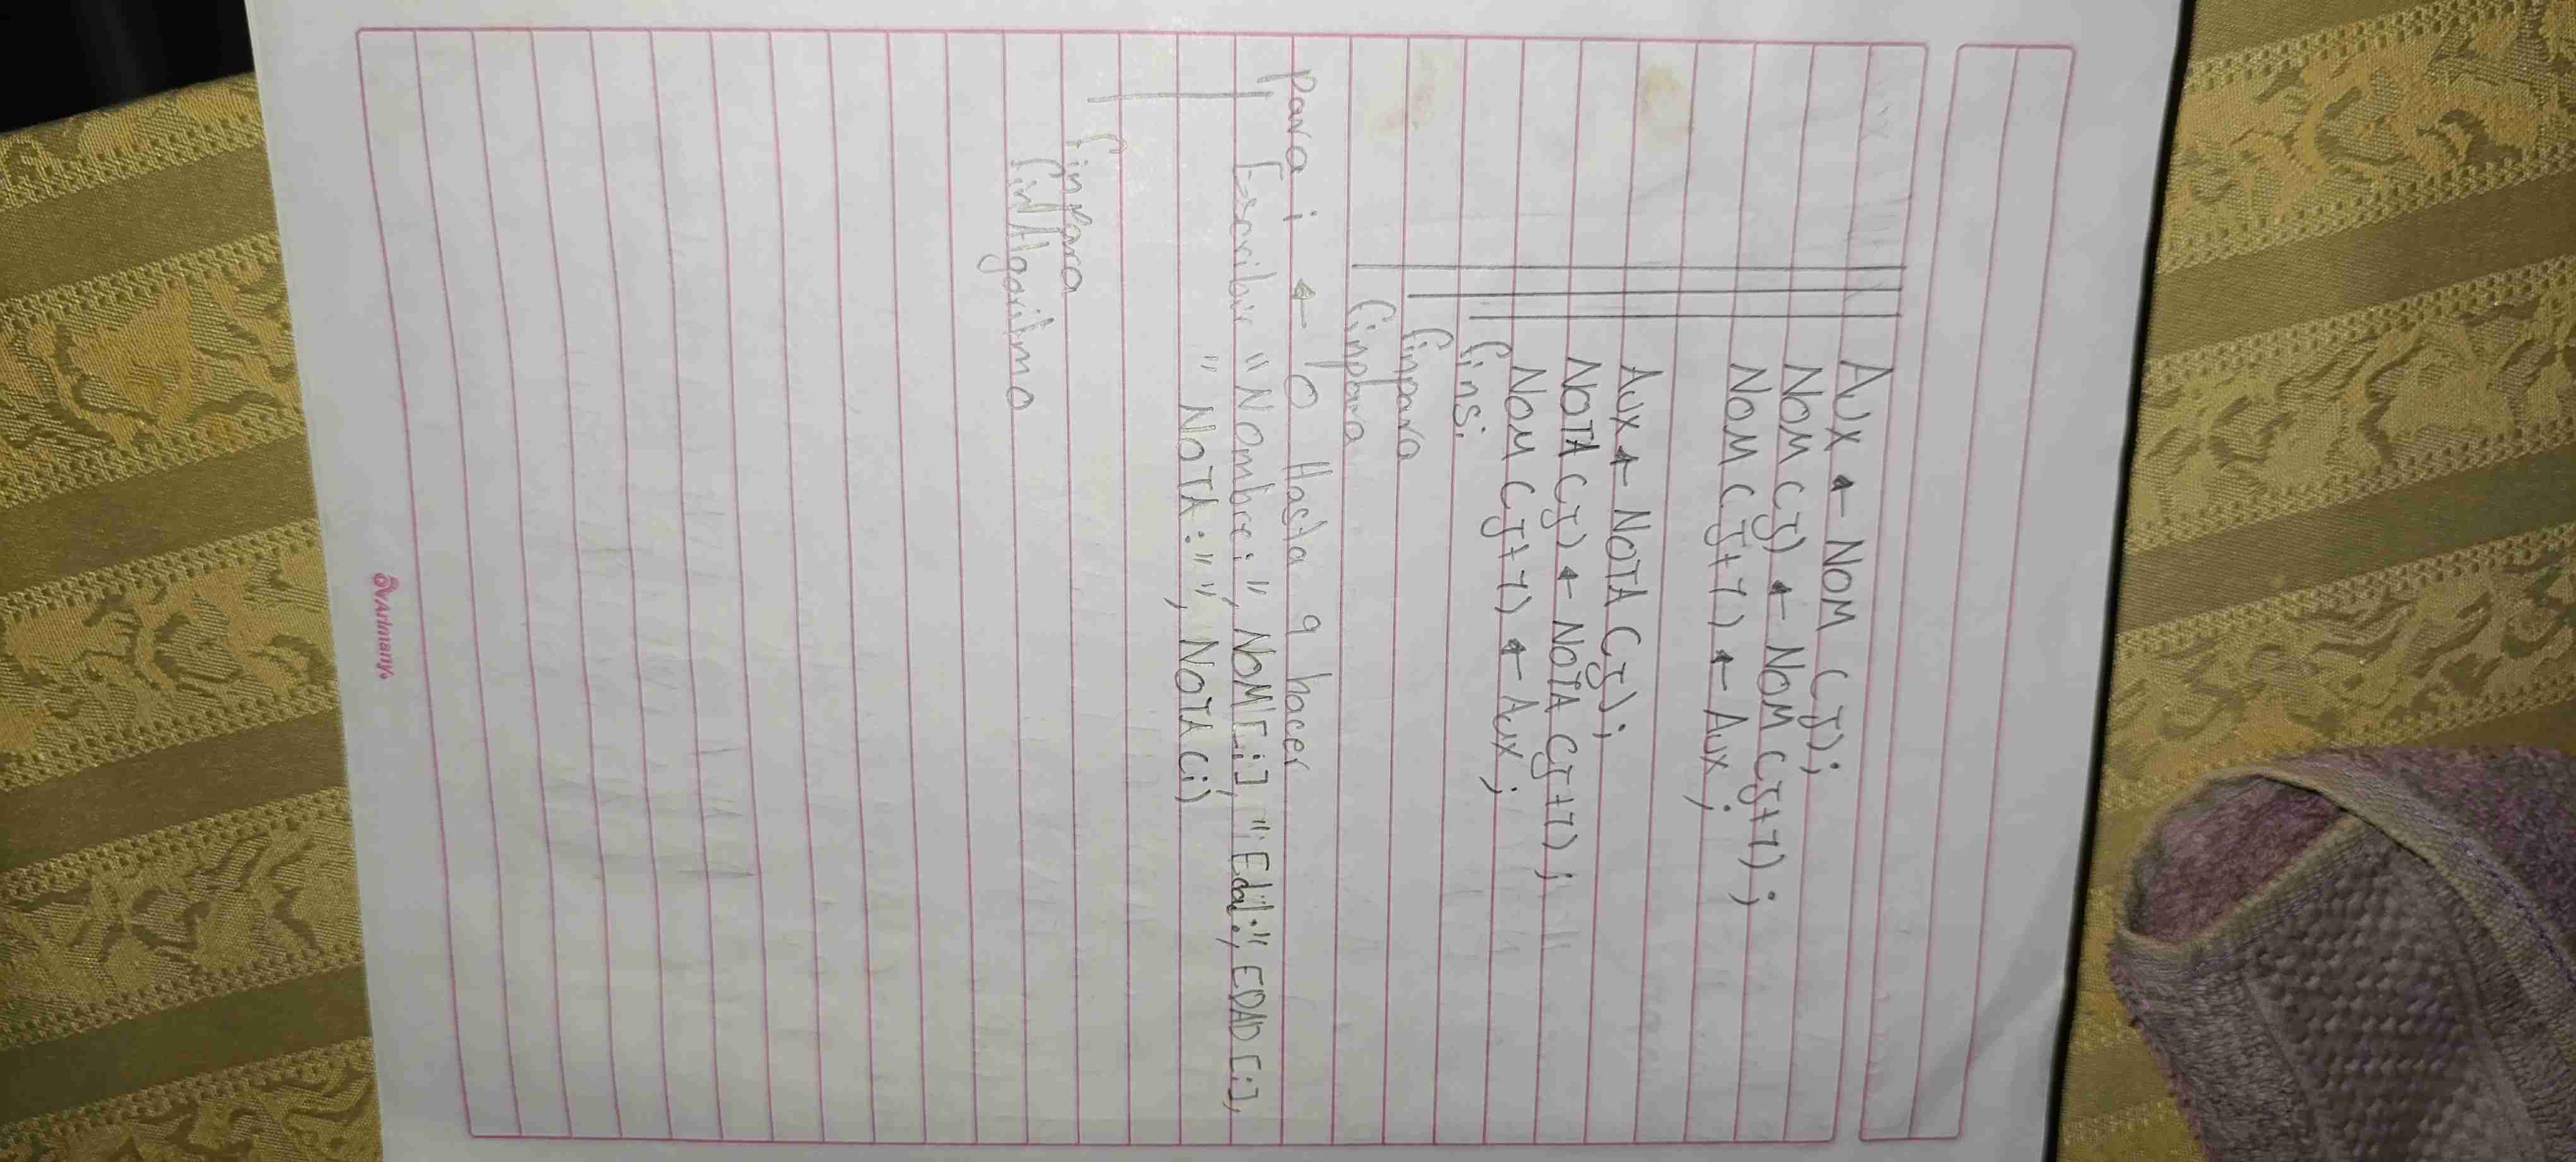 AUX ← NOM (J);
NOM (J) ← NOM (J+1);
NOM (J+1) ← AUX;
AUX ← NOTA (J);
NOTA (J) ← NOTA (J+1);
NOM (J+1) ← AUX;
finsi
finpara
finpara
Para i ← 0 Hasta 9 hacer
Escribir "Nombre:", NOM[i], "Edad:", EDAD[i],
"NOTA:"", NOTA(i)
finpara
finAlgoritmo
Artimany.